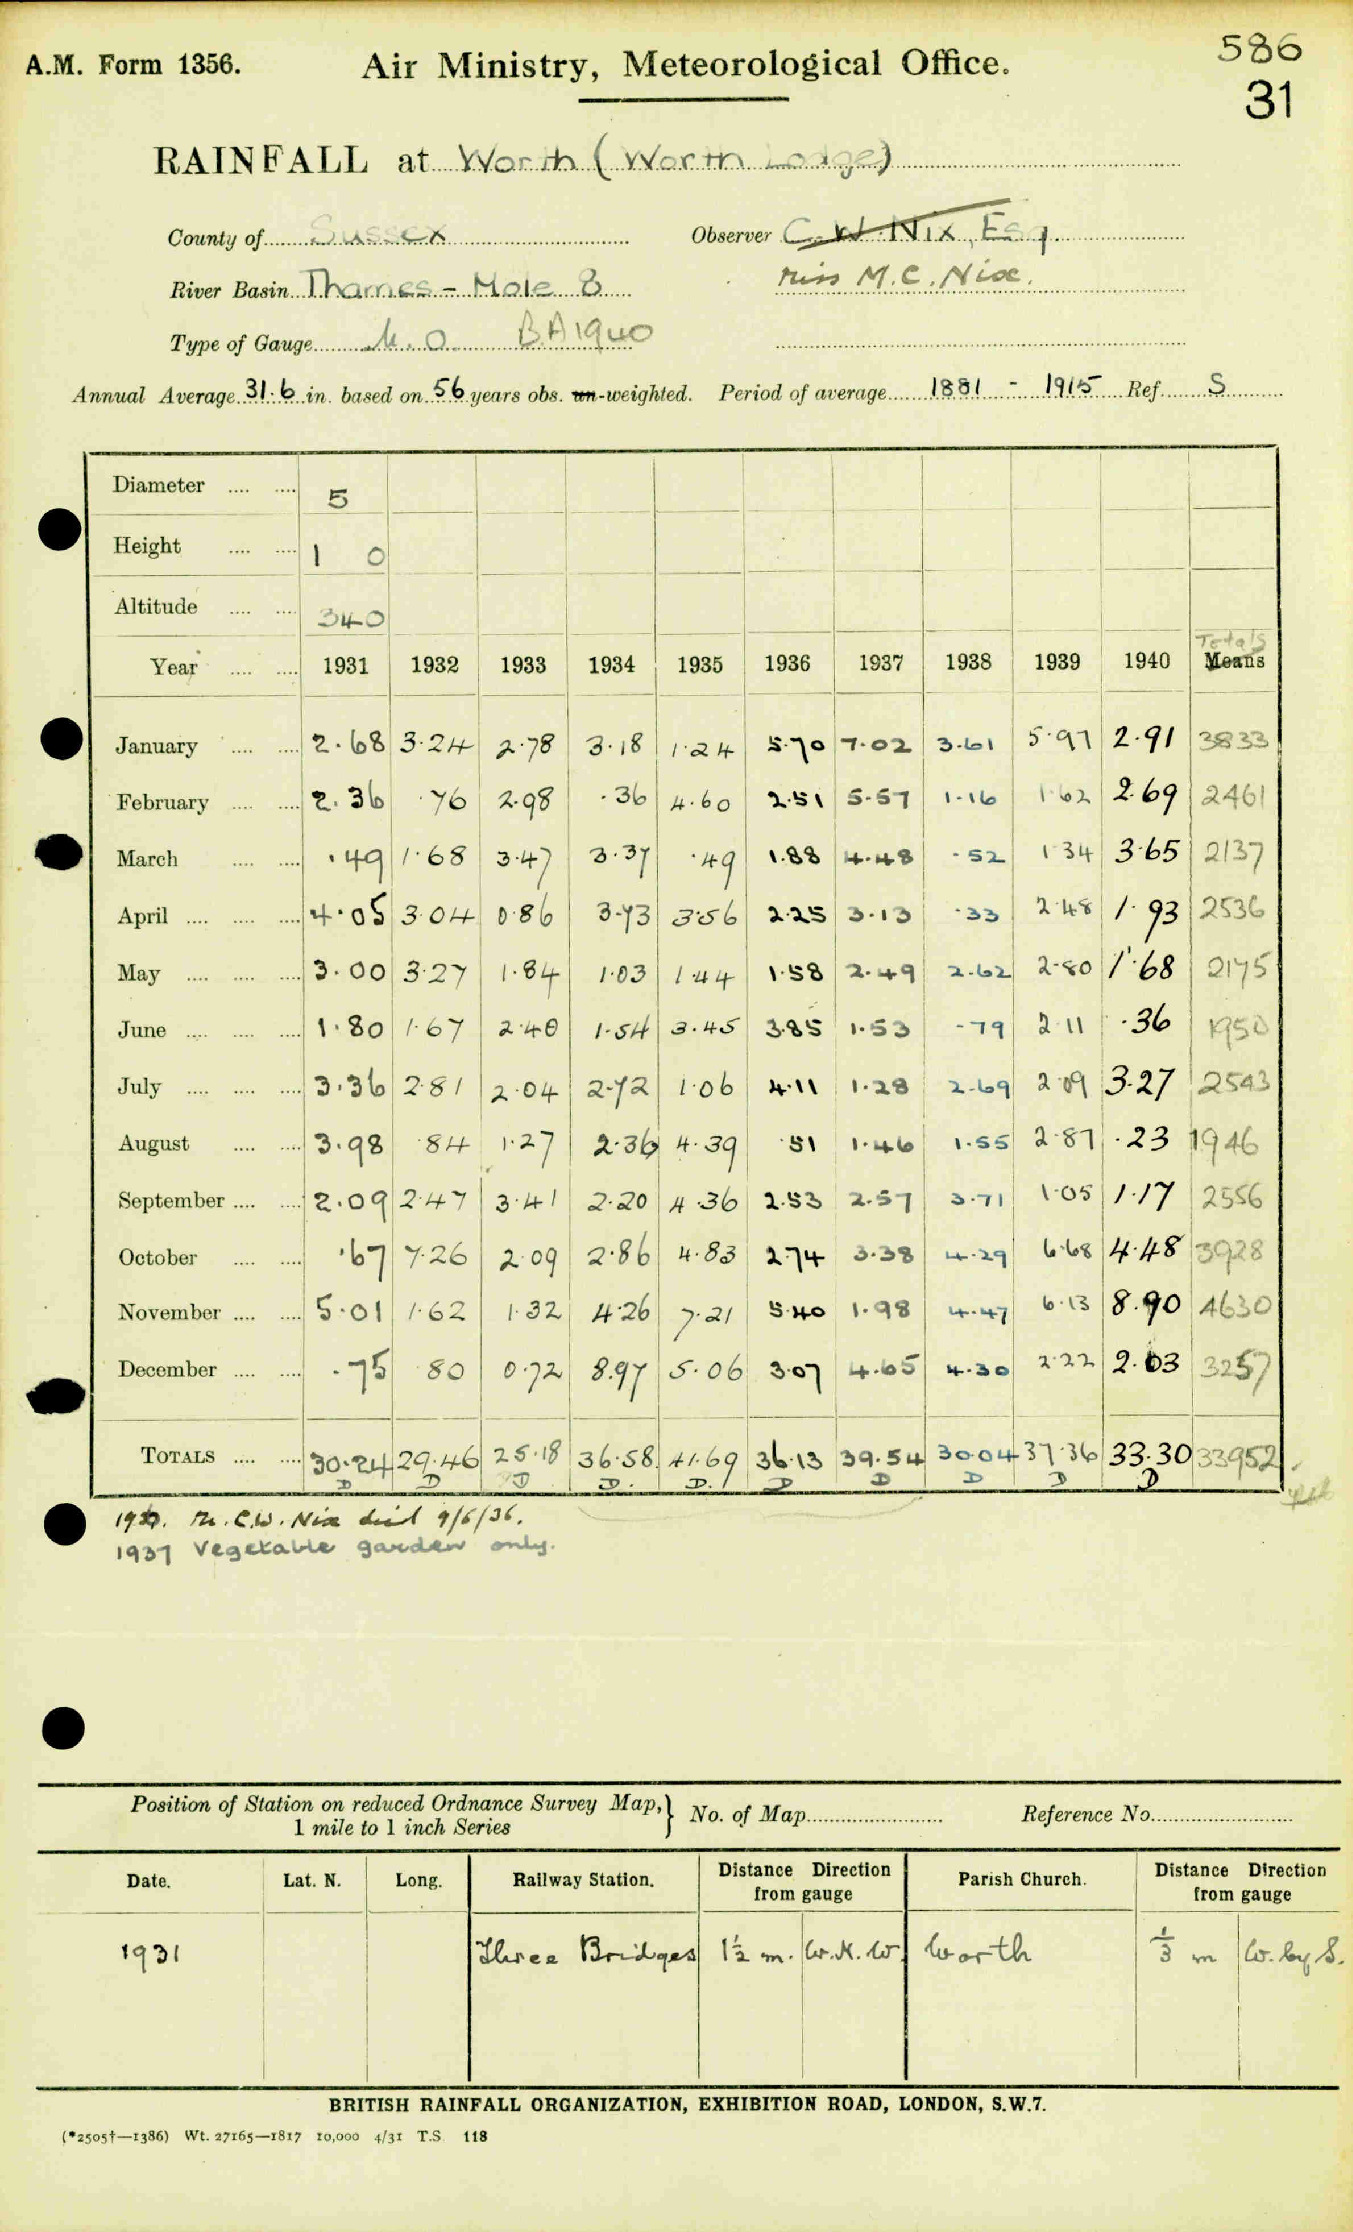 A.M. Form 1356.
Air Ministry, Meteorological Office.
586
31
RAINFALL at Worth (Worth Lodge)
County of Sussex
Observer C. W. Nix, Esq.
River Basin Thames - Mole 8
Miss M.C. Nix.
Type of Gauge M.O BA1940
Annual Average 31.6 in. based on 56 years obs. un-weighted. Period of average 1881 - 1915 Ref. S
Diameter .... .... 5
Height .... .... 1 0
Altitude .... .... 340
Totals
Year .... .... 1931 1932 1933 1934 1935 1936 1937 1938 1939 1940 Means
January .... .... 2.68 3.24 2.78 3.18 1.24 5.70 7.02 3.61 5.97 2.91 3833
February .... .... 2.36 .76 2.98 .36 4.60 2.51 5.57 1.16 1.62 2.69 2461
March .... .... .49 1.68 3.47 3.37 .49 1.88 4.48 .52 1.34 3.65 2137
April .... .... .... 4.05 3.04 0.86 3.73 3.56 2.25 3.13 .33 2.48 1.93 2536
May .... .... .... 3.00 3.27 1.84 1.03 1.44 1.58 2.49 2.62 2.80 1.68 2175
June .... .... .... 1.80 1.67 2.40 1.54 3.45 3.85 1.53 .79 2.11 .36 1950
July .... .... .... 3.36 2.81 2.04 2.72 1.06 4.11 1.28 2.69 2.09 3.27 2543
August .... .... 3.98 .84 1.27 2.36 4.39 .51 1.46 1.55 2.87 .23 1946
September .... .... 2.09 2.47 3.41 2.20 4.36 2.53 2.57 3.71 1.05 1.17 2556
October .... .... .67 7.26 2.09 2.86 4.83 2.74 3.38 4.29 6.68 4.48 3928
November .... .... 5.01 1.62 1.32 4.26 7.21 5.40 1.98 4.47 6.13 8.90 4630
December .... .... .75 80 0.72 8.97 5.06 3.07 4.65 4.30 2.22 2.03 3257
TOTALS .... .... 30.24 29.46 25.18 36.58 41.69 36.13 39.54 30.04 37.36 33.30 33952
D D D D. D. D D D D D
Mr. C.W. Nix died 9/6/36.
1937 Vegetable garden only.
Position of Station on reduced Ordnance Survey Map, 1 mile to 1 inch Series } No. of Map Reference No.
Date. Lat. N. Long. Railway Station. Distance Direction from gauge Parish Church. Distance Direction from gauge
1931 Three Bridges 1½ m. W.N.W. Worth ⅓ m W. by S.
BRITISH RAINFALL ORGANIZATION, EXHIBITION ROAD, LONDON, S.W.7.
(*2505†—1386) Wt. 27165—1817 10,000 4/31 T.S. 118